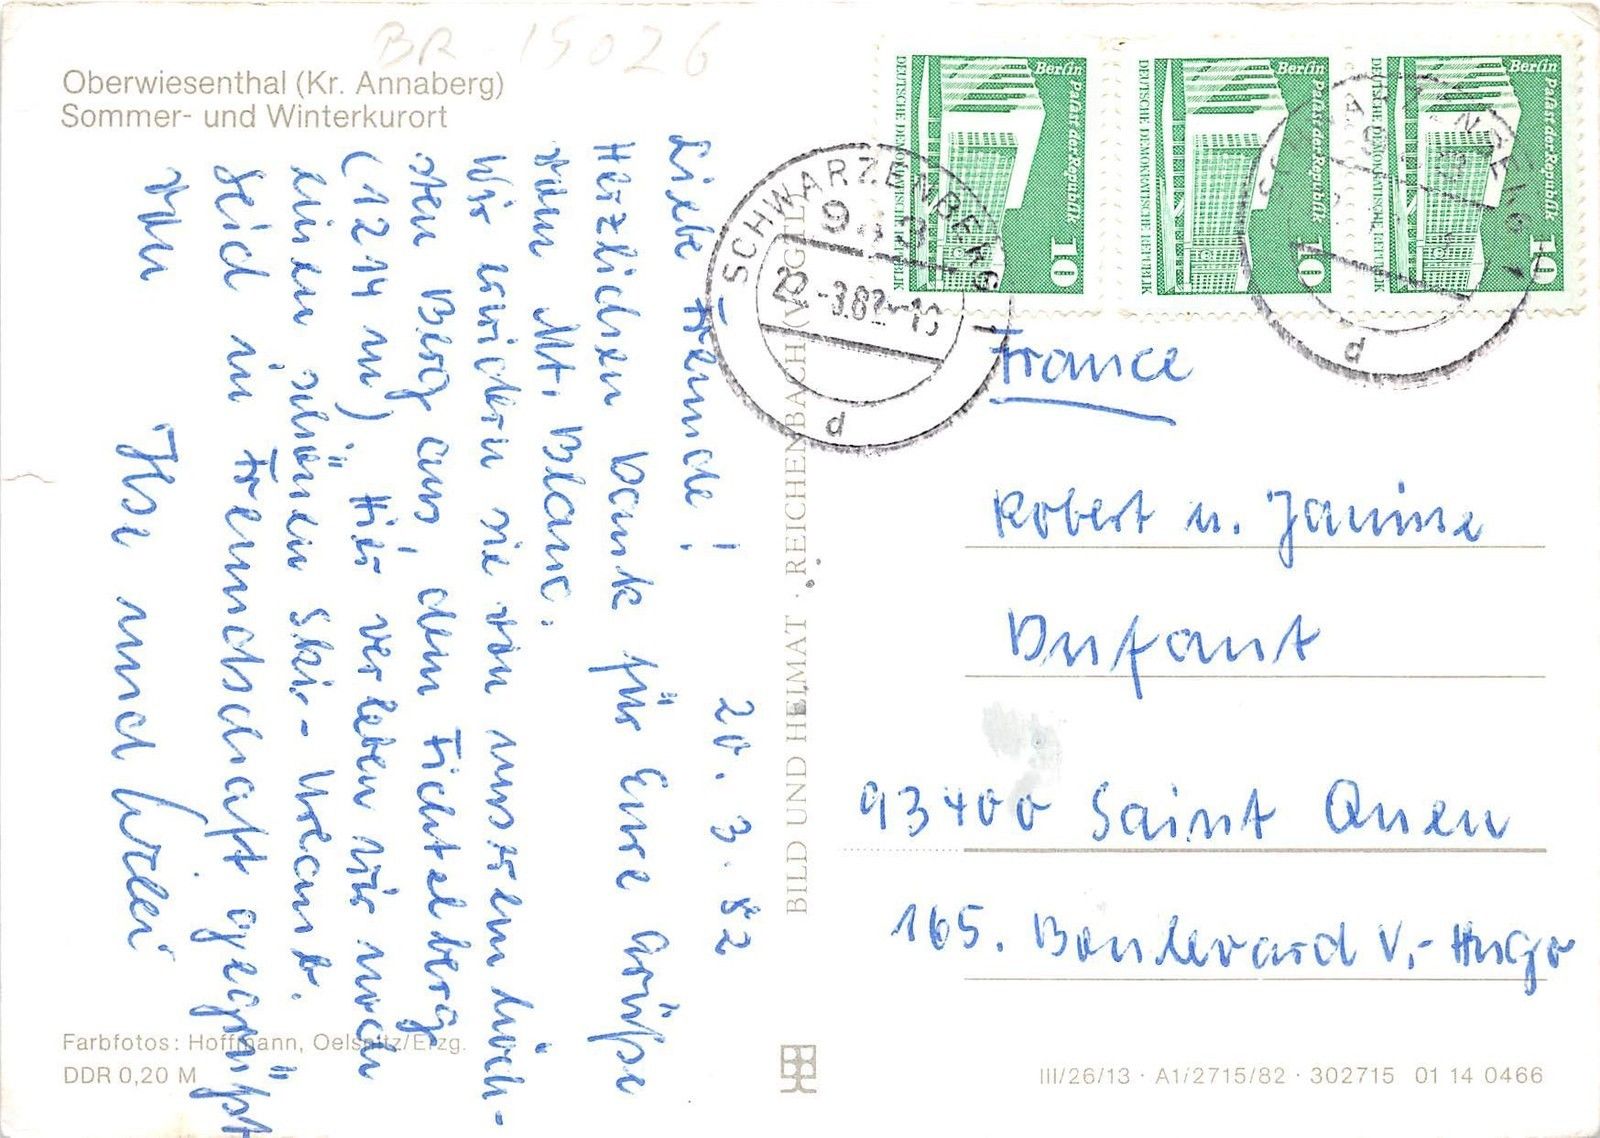 BR-15026
Oberwiesenthal (Kr. Annaberg)
Sommer- und Winterkurort
20. 3. 82
Liebe Freunde!
Herzlichen Dank für Eure Grüße
vom Mt. Blanc.
Wir erwidern sie von unserem höch-
sten Berg aus, dem Fichtelberg
(1214 m). Hier verleben wir noch
einen schönen Ski-Urlaub.
Seid in Freundschaft gegrüßt
von
Ilse und
Farbfotos: Hoffmann, Oelsnitz/Erzg.
DDR 0,20 M
BILD UND HEIMAT · REICHENBACH (VOGTL)
DEUTSCHE DEMOKRATISCHE REPUBLIK
Berlin
Palast der Republik
10
DEUTSCHE DEMOKRATISCHE REPUBLIK
Berlin
Palast der Republik
10
DEUTSCHE DEMOKRATISCHE REPUBLIK
Berlin
Palast der Republik
10
SCHWARZENBERG 1
943
22.-3.82
d
SCHWARZENBERG 1
d
France
Robert u. Janine
Dufaut
93400 Saint Ouen
165. Boulevard V.-Hugo
III/26/13 · A1/2715/82 · 302715 01 14 0466